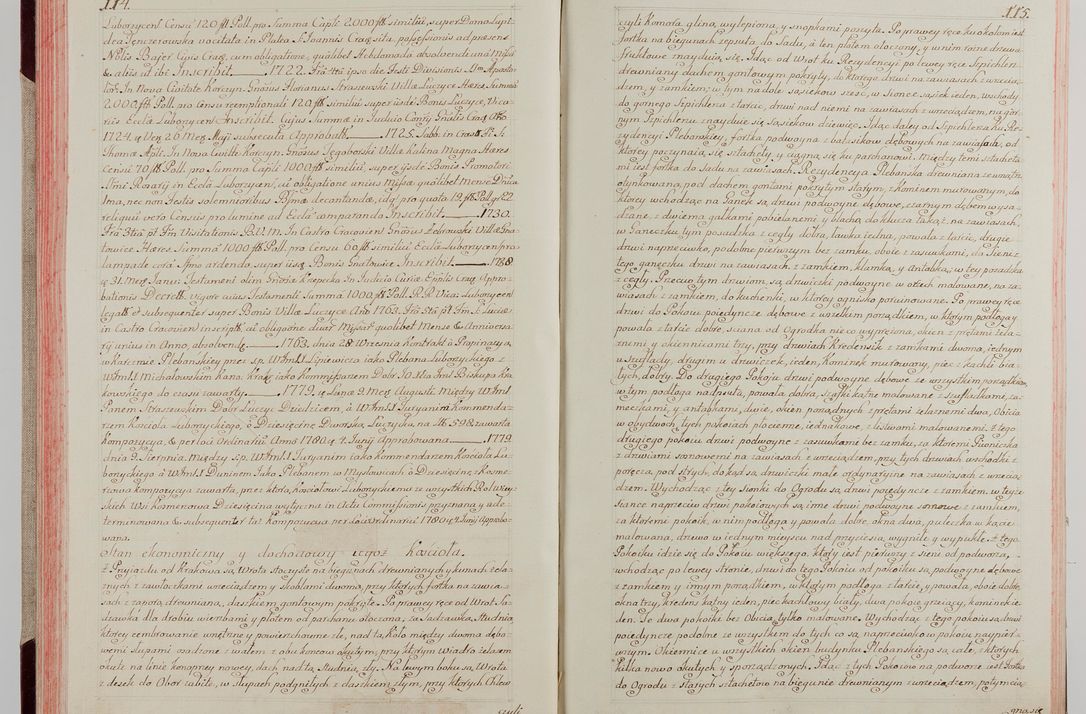 114.
Luborzycen̄ Censu 120 fl Poll. pro Summa Capitl 2000 fl similiū, super Domo Lapi-
dea vocitata in Platea S. Joannis Crac: sita, possessionis ad præsens
Nobilis Bajer Civis Crac: cum obligatione, qualibet Hebdomada absolvendi unā Missā
& aliis ut ibi Inscribit 1722.
Tor. In Nova Civitate Korczyn. Gnōsus Florianus Straszewski Villæ Luczyce Hæres Summā
2000 fl Poll. pro Censu reemptionali 120 fl similiū super iisdē Bonis Luczyce, Vica-
riis Eccliæ Luborzycen̄ Inscribit. Cujus Summæ in Judicio
1724. Approbatt 1725. Sabb. in Crast.
Thomæ Apli. In Nova Korczyn. Gnōsus Villæ Kalina Magna Hæres
Censū 70 fl Poll. pro Summa Capli 1000 fl similiū, super iisdē Bonis Promotori
Rosarij in Ecclā Luborzycen̄, cū obligatione unius Missæ qualibet Mense
decantandæ, pro quota 19 fl Poll. gr. 22.
reliqui vero Censūs pro lumine ad Ecclā comparando Inscribit 1730.
Visitationis B.V.M. In Castro Cracovien̄ Gnōsus Zebrowski Villæ Gna-
towice Hæres Summā 1000 fl Poll. pro Censu 60 fl similiū Eccliæ Luborzycen̄ pro
lampade ardendo super iisdē Bonis Gnatowice Inscribit 1738
31. Mens. Janu: Testamenti olim In Judicio Curiæ Appro-
bationis Decrett. vigore cuius Testamenti Summa 1000 fl Poll. Luborzycen̄
legatt & subsequenter super Bonis Villæ Luczyce Añō 1763.
in Castro Cracovien̄ inscriptt, cū obligōne Missar. qualibet Mense & Anniversa-
rij unius in Anno, absolven. 1763. dnia 28 Września Kontrakt o Propinacyą
w Karczmie Plebańskiey przez śp. Lipiewicza iako Plebana Luborzyckiego z
Michałowskim Kano. Krak: iako Kommissarzem Dobr Biskupa Kra-
kowskiego do czasu zawarty 1779. 9. Mens. Augusti. Między
Panem Straszewskim Dobr Luczyc Dziedzicem, à Jurganim Kommenda-
rzem Kościoła Luborzyckiego, o Dziesięcinę Dworską Luczycką, na fl 598 zawarta
Kompozycya, & per loci Ordinariū Anno 1780. 4. Junij Approbowana 1779.
dnia 9. Sierpnia. Między śp. Jurganim iako Kommendarzem Kościoła Lu-
borzyckiego à Duninem Iako Plebanem w Mysłowicach o Dziesięcinę Kosmie-
rzową kompozycya zawarta, przez którą Kościołowi Luborzyckiemu ze wszystkich Rol Wiey-
skich Wsi Kosmierzowa Dziesięcina wytyczna in Actu Commissionis przyznana y ude-
terminowana & subsequenter taż Kompozycya per loci Ordinariū 1780. 4. Junij Approbo-
wana.
Stan ekonomiczny y dochodowy tegoż Kościoła.
Z Przyiazdu od Krakowa są Wrota sfoszyste na biegunach drewnianych y kunach żela-
znych z zawłoczkami wrzeciądzem y skoblami dwoma, przy których fortka na zawia-
sach z zaporą drewnianą, daszkiem gontowym pokryte. Po prawey ręce od Wrot Sa-
dzawka dla drobiu wierzbami y płotem od parkanu otoczona, za Sadzawką, Studnia
ktorey cembrowanie wnętrzne y powierzchowne złe, nad tą Koło między dwoma dębo-
wemi słupami osadzone z wałem z obu końcow okutym, przy którym Wiadro żelazem
okute na linie konopney nowey, dach nad tą Studnią, zły. Na lewym boku są Wrota
z desek do Obor zabite, w słupach podgniłych z daszkiem złym, przy których Chlew
czyli

115.
czyli Komora gliną, wylepiona, y snopkami poszyta. Po prawey ręce ku okołom iest
fortka na biegunach zepsuta do Sadu, a ten płotem otoczony y w nim rożne drzewa
fruktowe znayduią się. Idąc od Wrot ku Rezydencyi po lewey ręce Szpichlerz
drewniany dachem gontowym pokryty, do ktorego drzwi na zawiasach z wrzecią-
dzem, y zamkiem; w tym na dole sąsiekow sześć, w Sionce sąsiek ieden, wschody
do gornego Szpichlerza z tarcic, drzwi nad niemi na zawiasach z wrzeciądzem, na gor-
nym Szpichlerzu znayduie się sąsiekow dziewięć. Idąc daley od Szpichlerza ku Re-
zydencyi Plebańskiey, fortka podwoyna z balasikow dębowych na zawiasach, od
ktorey poczynaią się sztachety, y ciągną się ku parchanowi. Między temi sztacheta-
mi iest fortka do Sadu na zawiasach. Rezydencya Plebańska drewniana zewnątrz
otynkowana, pod dachem gontami poszytym starym, z Kominem murowanym, do
ktorey wchodząc na Ganek są drzwi podwoyne dębowe, czarnym dębem wysa-
dzane, z dwiema gałkami pobielanemi y blachą, do klucza takąż, na zawiasach,
w Ganeczku tym posadzka z cegły dobra, ławka iedna, powała z tarcic, drugie
drzwi naprzeciwko, podobne pierwszym bez zamku, obole z zasuwkami, do Sieni z
tego ganeczku drzwi na zawiasach z zamkiem, klamką, y Antabką, w tey posadzka
z cegły. Przeciw tym drzwiom, są drzwiczki podwoyne w oczach malowane, na za-
wiasach z zamkiem, do kuchenki, w ktorey ognisko porujnowane. Po prawey ręce
drzwi do Pokoiu poiedyncze dębowe z wszelkim porządkiem, w ktorym podłoga y
powała z tarcic dobre, sciana od Ogrodka nieco wyprzona, okien z prętami żela-
znemi y okiennicami trzy, przy drzwiach Kredensik z zamkami dwoma, iednym
u szuflady, drugim u drzwiczek, ieden, Kominek murowany, piec z kafli bia-
łych, dobry. Do drugiego Pokoju drzwi podwoyne dębowe ze wszystkim porządkiem,
w tym podłoga nadpsuta, powała dobra, szafki kątne malowane z szufladkami, za-
meczkami, y antabkami, dwie, okien porządnych z prętami żelaznemi dwa, Obicia
w obydwoch, tych pokoiach płocienne, iednakowe, z listwami malowanemi. Z tego
drugiego pokoiu drzwi podwoyne z zasuwkami bez zamku, za ktoremi Piwniczka
z drzwiami sosnowemi na zawiasach z wrzeciądzem, przy tych drzwiach wschodki z
poręczą, pod strych, dokąd są drzwiczki małe ordynaryine na zawiasach z wrzecią-
dzem. Wychodząc z tey sionki do Ogrodu są drzwi poiedyncze z zamkiem, w teyże
sience naprzeciw drzwi pokoiowych są inne drzwi podwoyne sosnowe z zamkiem,
za ktoremi pokoik, w nim podłoga y powała dobre, okna dwa, pułeczka w kącie
malowana, drzewo w iednym mieyscu nad przyciesią wygniłe y wypukłe. Z tego
Pokoiku idzie się do Pokoiu większego, ktory iest pierwszy z sieni od podworza,
wchodząc po lewey stronie, drzwi do tego Pokoiu od pokoiku są podwoyne dębowe
z zamkiem y innym porządkiem, w ktorym podłoga z tarcic, y powała, oboie dobre,
okna trzy, kredens kątny ieden, piec kachlowy biały, dwa pokoie grzeiący, kominek ie-
den. Te dwa pokoiki bez Obicia tylko malowane. Wychodząc z tego pokoiu są drzwi
poiedyncze podobne ze wszystkim do tych co są naprzeciwko w pokoiu naypier-
wszym. Okiennice u wszystkich okien budynku Plebańskiego są całe, z ktorych
kilka nowo okutych y sporządzonych. Idąc z tych Pokoiow na podworze iest Fortka
do Ogrodu z starych sztachetow na biegunie drewnianym z wrzeciądzem, potym cią-
gną się